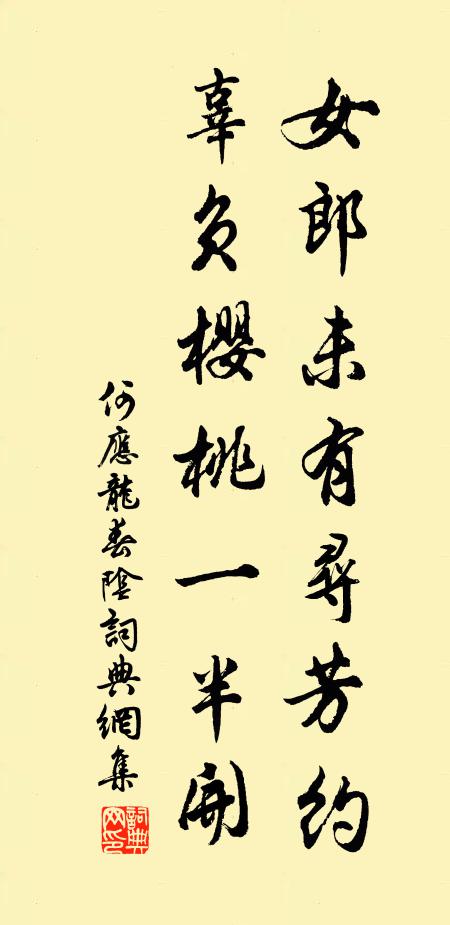 女郎未有尋芳約
辜負櫻桃一半開
何應龍春陰詞典網集
詞典網印